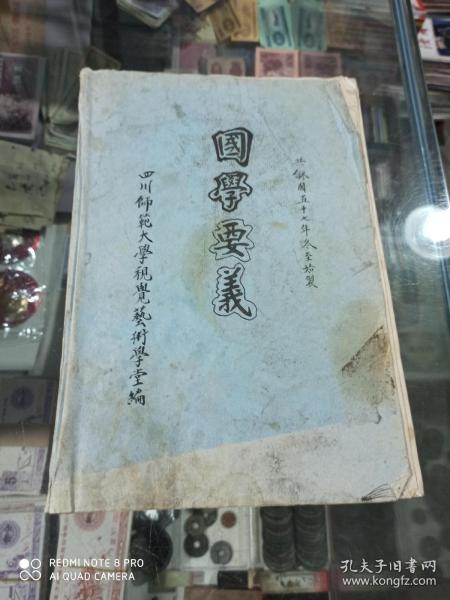 國學要義
四川師範大學視覺藝術學堂編
國五十七年冬至始製
REDMI NOTE 8 PRO
AI QUAD CAMERA
孔夫子旧书网
www.kongfz.com